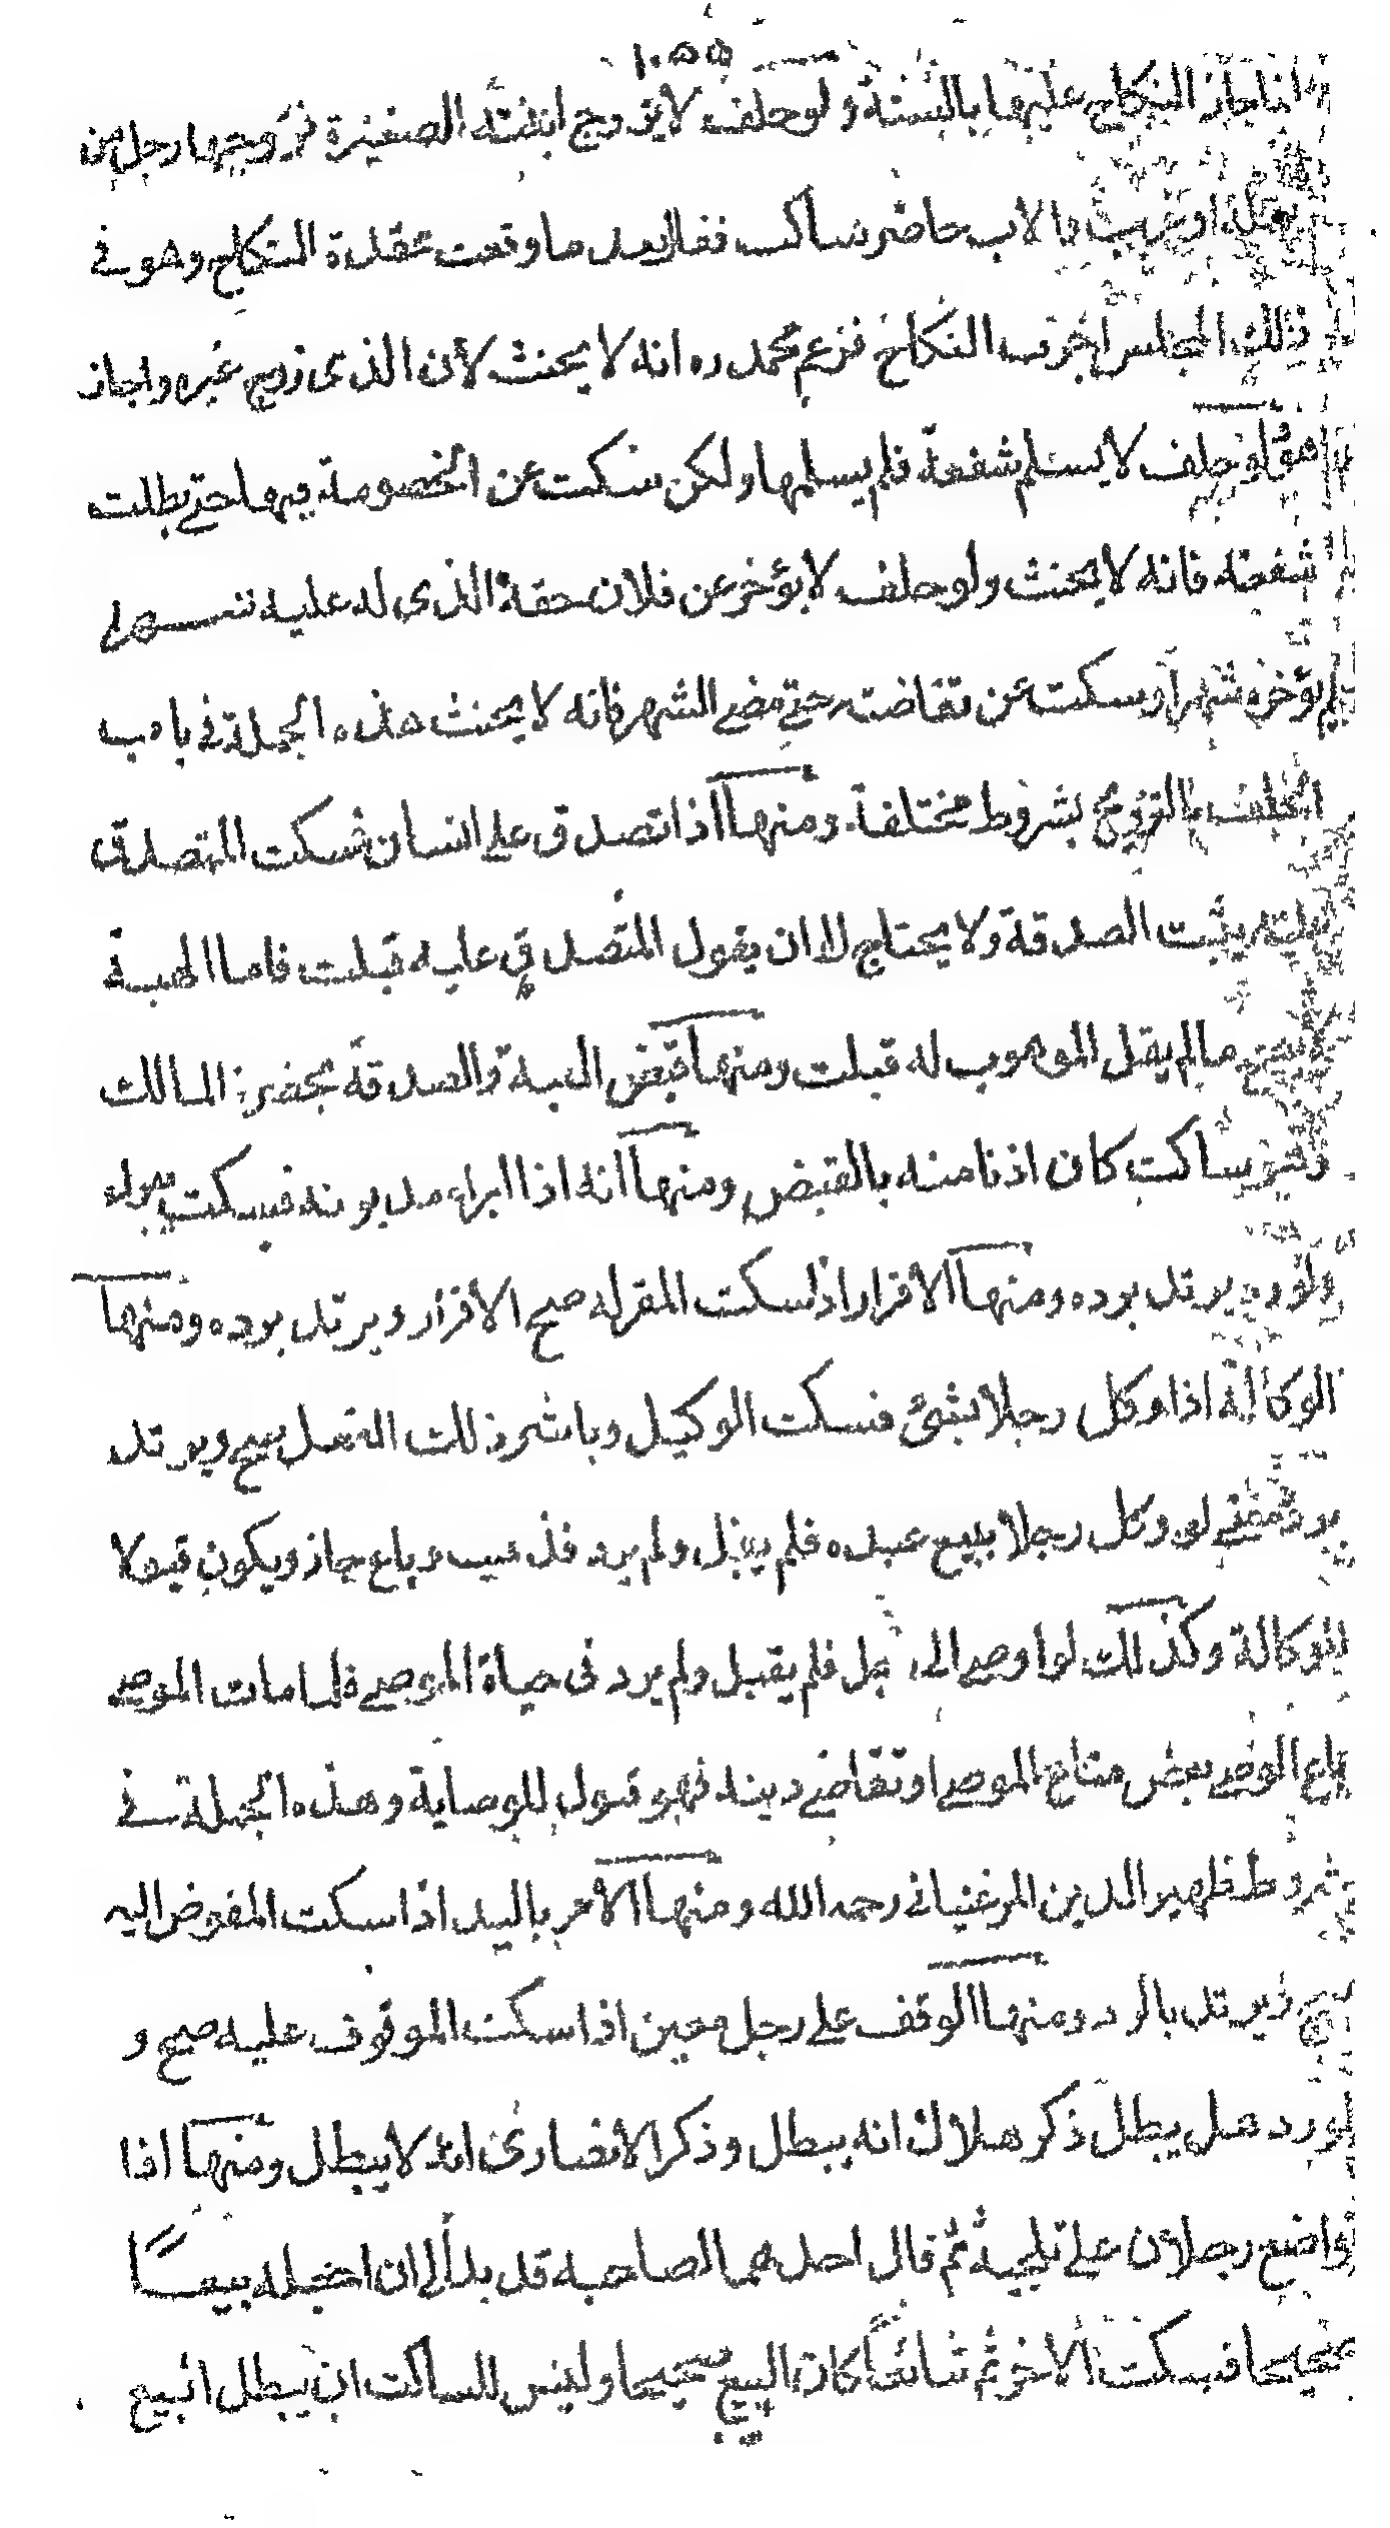 ١٠٥٥
انما جاز النكاح عليها بالسنة ولو حلف لا يزوج ابنته الصغيرة فزوجها رجل من
اهله او غريب والاب حاضر ساكت فقال بعد ما وقعت عقدة النكاح وهو في
ذلك المجلس اجزت النكاح فزعم محمد ره انه لا يحنث لان الذى زوج غيره واجاز
هو ولو حلف لا يسلم شفعة فلم يسلمها ولكن سكت عن الخصومة فيها حتى بطلت
شفعته فانه لا يحنث ولو حلف لا يؤخر عن فلان حقه الذى له عليه شهرا
فلم يؤخره شهرا وسكت عن تقاضته حتى مضى الشهر فانه لا يحنث هذه الجملة في باب
الحلف بالتزويج بشروط مختلفة ومنها اذا تصدق على انسان فسكت المتصدق
عليه يثبت الصدقة ولا يحتاج الا ان يقول المتصدق عليه قبلت فاما الهبة
لا يصح مالم يقل الموهوب له قبلت ومنها قبض الهبة والصدقة بحضرة المالك
وهو ساكت كان اذنا منه بالقبض ومنها انه اذا ابراء مديونه فسكت يبراء
ولو رد يرتد برده ومنها الاقرار اذا سكت المقر له صح الاقرار ويرتد برده ومنها
الوكالة اذا وكل رجلا بشئ فسكت الوكيل وباشر ذلك الفعل صح ويرتد
برده فعلى لو وكل رجلا ببيع عبده فلم يقبل ولم يرد فذهب وباع جاز ويكون قبولا
للوكالة وكذلك لو اوصى الى رجل فلم يقبل ولم يرد فى حياة الموصى فلما مات الموصى
باع الوصى بعض متاع الموصى او تقاضى دينه فهو قبول للوصاية وهذه الجملة في
شروط ظهير الدين المرغينانى رحمه الله ومنها الامر باليد اذا سكت المفوض اليه
صح ويرتد بالرد ومنها الوقف على رجل معين اذا سكت الموقوف عليه صح و
لو رد هل يبطل ذكر هلال انه يبطل وذكر الانصارى انه لا يبطل ومنها اذا
تواضع رجلان على تلجية ثم قال احدهما لصاحبه قد بدا لى ان اجعله بيعا
صحيحا فسكت الاخر ثم تبايعا كان البيع صحيحا وليس للساكت ان يبطل البيع